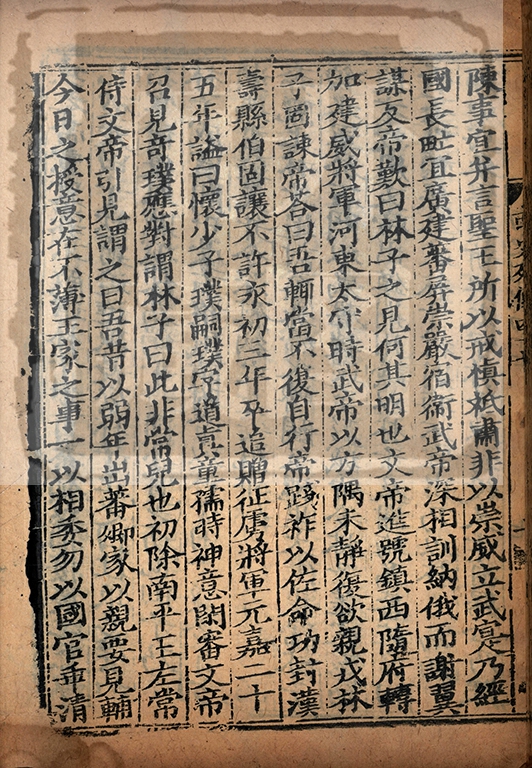 陳事宜并言聖王所以戒慎祗肅非以崇威立武寔乃經
國長畒宜廣建蕃屏崇嚴宿衞武帝深相訓納俄而謝翼
謀反帝歎曰林子之見何其明也文帝進號鎮西隨府轉
加建威將軍河東太守時武帝以方隅未靜復欲親戎林
子固諫帝答曰吾輙當不復自行帝踐祚以佐命功封漢
壽縣伯固讓不許永初三年卒追贈征虜將軍元嘉二十
五年謚曰懷少子璞嗣璞字道真童孺時神意閑審文帝
召見奇璞應對謂林子曰此非常兒也初除南平王左常
侍文帝引見謂之曰吾昔以弱年出蕃卿家以親要見輔
今日之授意在不薄王家之事一以相委勿以國官乖清